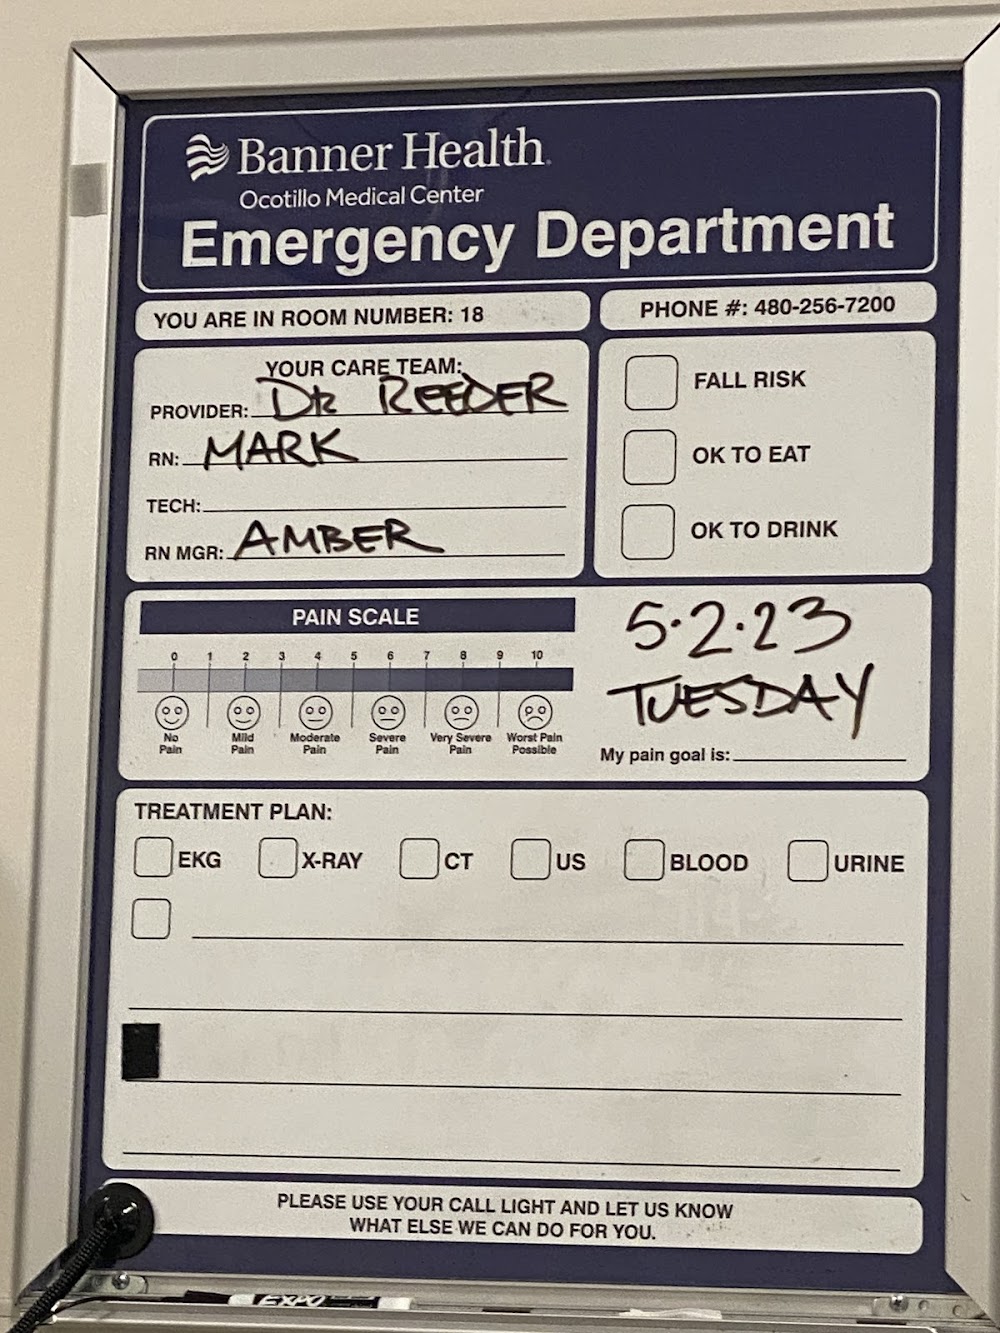 Banner Health
Ocotillo Medical Center
Emergency Department
YOU ARE IN ROOM NUMBER: 18
PHONE #: 480-256-7200
YOUR CARE TEAM:
PROVIDER: DR REEDER
RN: MARK
TECH:
RN MGR: AMBER
FALL RISK
OK TO EAT
OK TO DRINK
PAIN SCALE
0 1 2 3 4 5 6 7 8 9 10
No Pain
Mild Pain
Moderate Pain
Severe Pain
Very Severe Pain
Worst Pain Possible
5.2.23
TUESDAY
My pain goal is:
TREATMENT PLAN:
EKG X-RAY CT US BLOOD URINE
PLEASE USE YOUR CALL LIGHT AND LET US KNOW
WHAT ELSE WE CAN DO FOR YOU.
EXPO